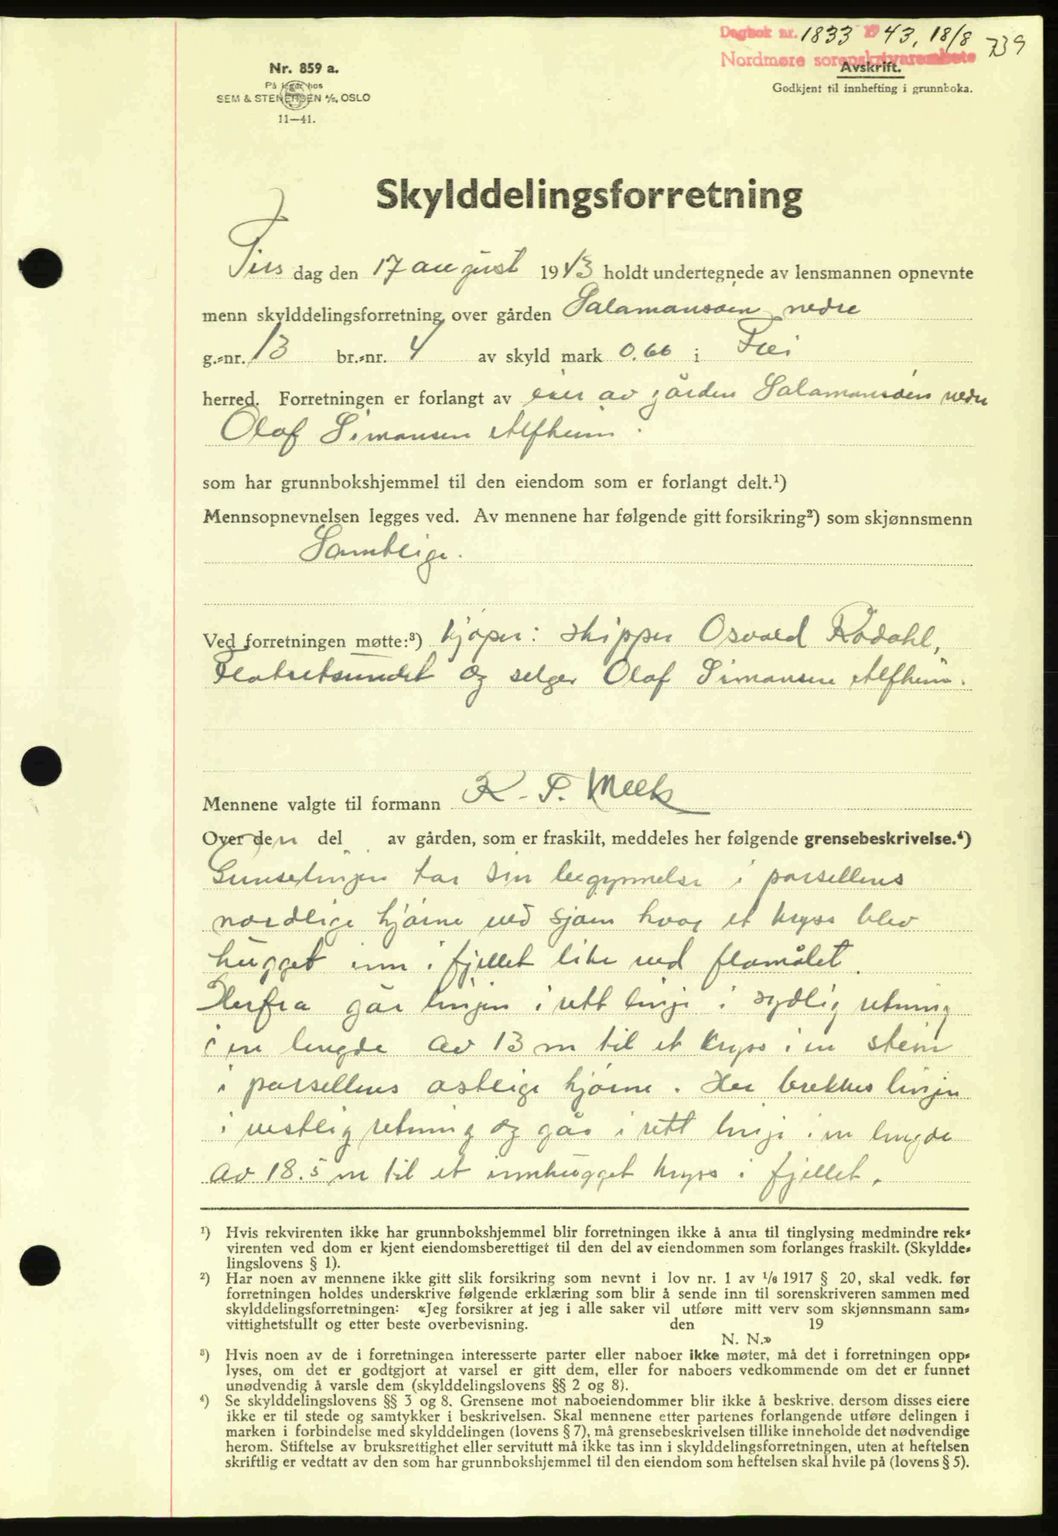 Dagbok nr. 1833 1943, 18/8 739
Nordmøre sorenskriverembete
Nr. 859 a.
På lager hos
SEM & STENERSEN A/S, OSLO
11—41.
Avskrift.
Godkjent til innhefting i grunnboka.
Skylddelingsforretning
Tirs dag den 17 august 1943 holdt undertegnede av lensmannen opnevnte
menn skylddelingsforretning over gården Salamonsøen nedre
g.-nr. 13 br.-nr. 4 av skyld mark 0.66 i Frei
herred. Forretningen er forlangt av eier av gården Salamonsøen nedre
Olaf Simonsen Alfheim.
som har grunnbokshjemmel til den eiendom som er forlangt delt.¹)
Mennsopnevnelsen legges ved. Av mennene har følgende gitt forsikring²) som skjønnsmenn
Samtlige.
Ved forretningen møtte:³) kjøper: skipper Osvald Rødahl,
Flatsetsundet og selger Olaf Simonsen Alfheim.
Mennene valgte til formann K. P. Meek
Over den del av gården, som er fraskilt, meddeles her følgende grensebeskrivelse.⁴)
Grenselinjen tar sin begynnelse i parsellens
nordlige hjørne ved sjøen hvor et kryss blev
hugget inn i fjellet like ved flomålet.
Herfra går linjen i rett linje i sydlig retning
i en lengde av 13 m til et kryss i en stein
i parsellens østlige hjørne. Her brekkes linjen
i vestlig retning og går i rett linje i en lengde
av 18.5 m til et innhugget kryss i fjellet.
¹) Hvis rekvirenten ikke har grunnbokshjemmel blir forretningen ikke å anta til tinglysing medmindre rek-
virenten ved dom er kjent eiendomsberettiget til den del av eiendommen som forlanges fraskilt. (Skyldde-
lingslovens § 1).
²) Har noen av mennene ikke gitt slik forsikring som nevnt i lov nr. 1 av 1/6 1917 § 20, skal vedk. før
forretningen holdes underskrive følgende erklæring som blir å sende inn til sorenskriveren sammen med
skylddelingsforretningen: «Jeg forsikrer at jeg i alle saker vil utføre mitt verv som skjønnsmann sam-
vittighetsfullt og etter beste overbevisning. den 19
N. N.»
³) Hvis noen av de i forretningen interesserte parter eller naboer ikke møter, må det i forretningen opp-
lyses, om det er godtgjort at varsel er gitt dem, eller for naboers vedkommende om det er funnet
unødvendig å varsle dem (skylddelingslovens §§ 2 og 8).
⁴) Se skylddelingslovens §§ 3 og 8. Grensene mot naboeiendommer blir ikke å beskrive, dersom disses eiere
ikke er til stede og samtykker i beskrivelsen. Skal mennene etter partenes forlangende utføre delingen i
marken i forbindelse med skylddelingen (lovens § 7), må grensebeskrivelsen tillike inneholde det nødvendige
herom. Stiftelse av bruksrettighet eller servitutt må ikke tas inn i skylddelingsforretningen, uten at heftelsen
skriftlig er vedtatt av den som har grunnbokshjemmel til den eiendom som heftelsen skal hvile på (lovens § 5).